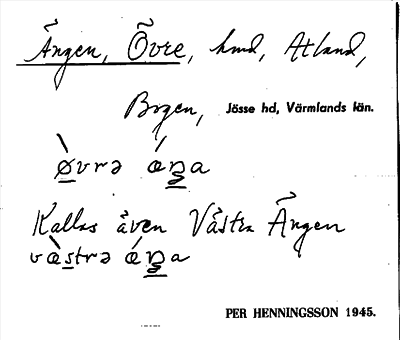 Ängen, Övre, hmd, Utland,
Bogen, Jösse hd, Värmlands län.
ø̀vrə ǽŋa
Kallas även Västra Ängen
væ̀strə ǽŋa
PER HENNINGSSON 1945.